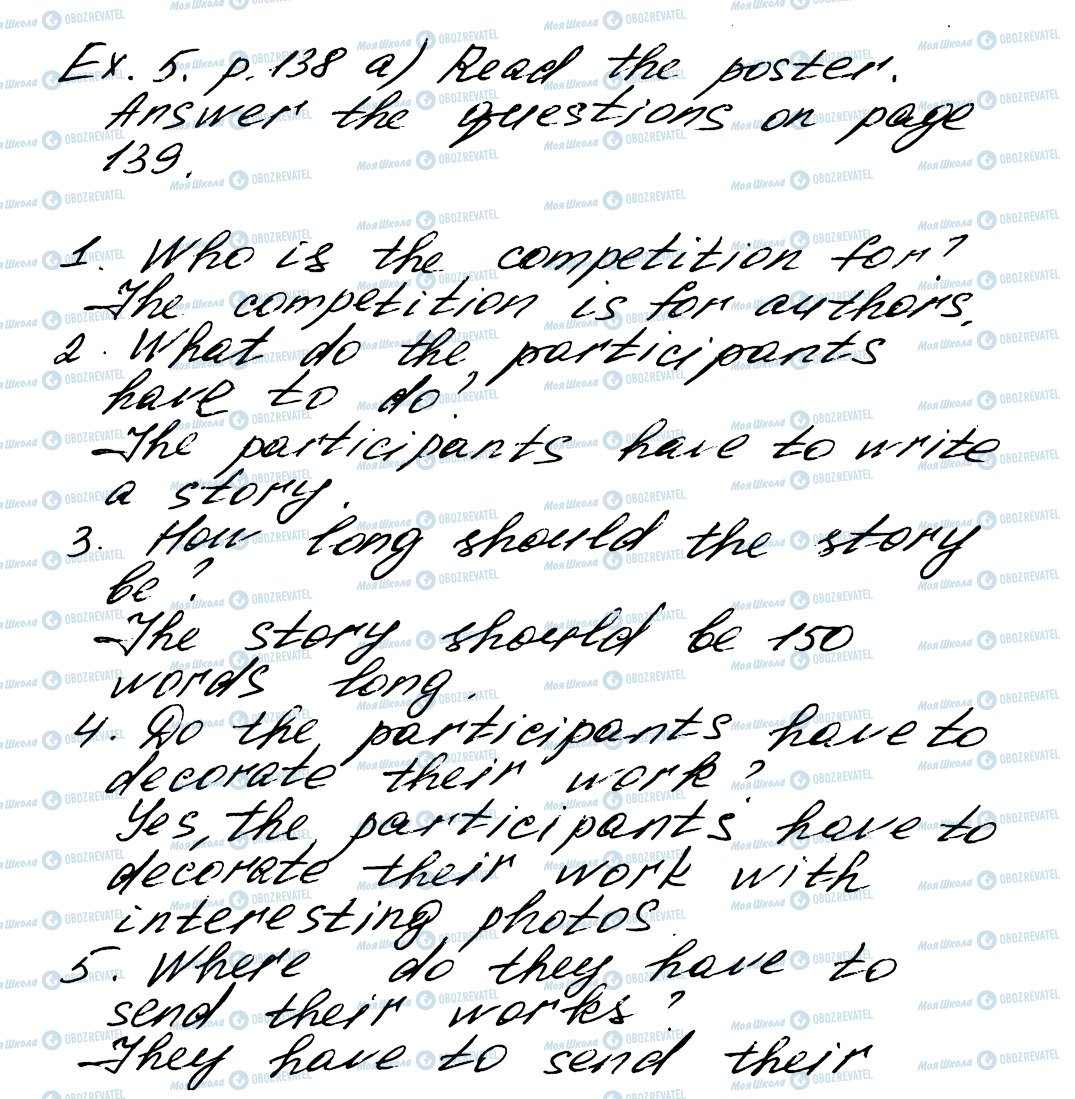 Ex. 5. p. 138 a) Read the poster.
Answer the questions on page
139.
1. Who is the competition for?
-The competition is for authors.
2. What do the participants
have to do?
-The participants have to write
a story.
3. How long should the story
be?
-The story should be 150
words long.
4. Do the participants have to
decorate their work?
Yes, the participants have to
decorate their work with
interesting photos
5. Where do they have to
send their works?
-They have to send their
Моя Школа OBOZREVATEL